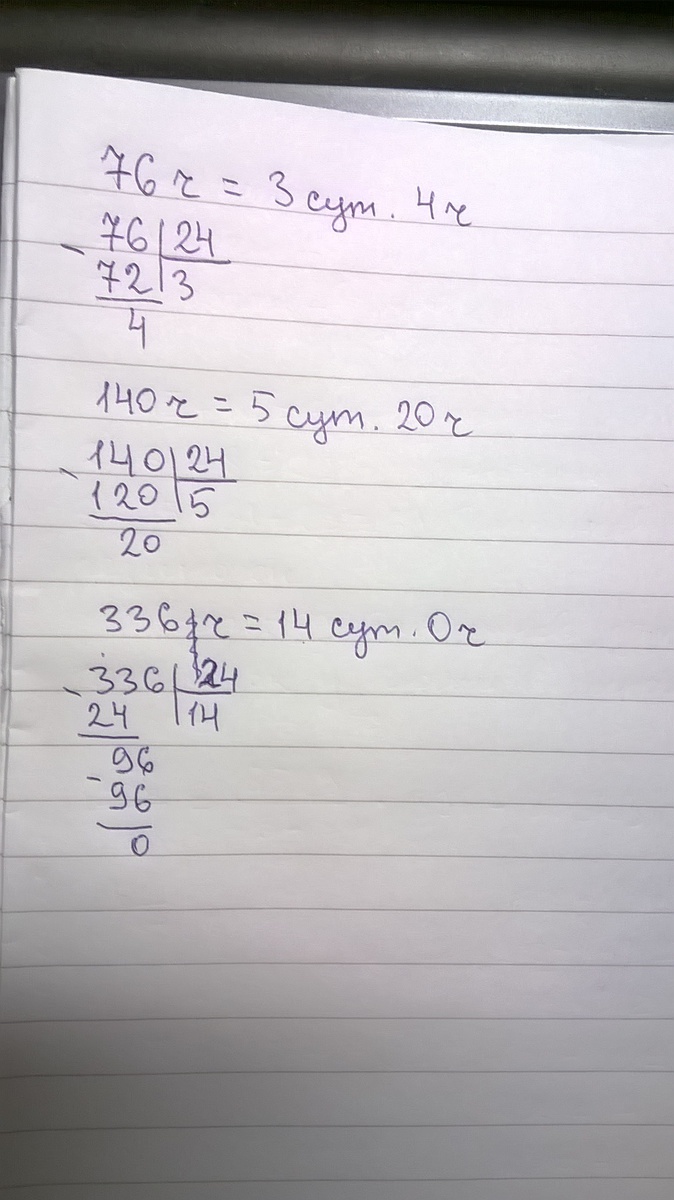 76 ч = 3 сут. 4 ч
76 24
72 3
4
140 ч = 5 сут. 20 ч
140 24
120 5
20
336 ч = 14 сут. 0 ч
336 24
24 14
96
96
0